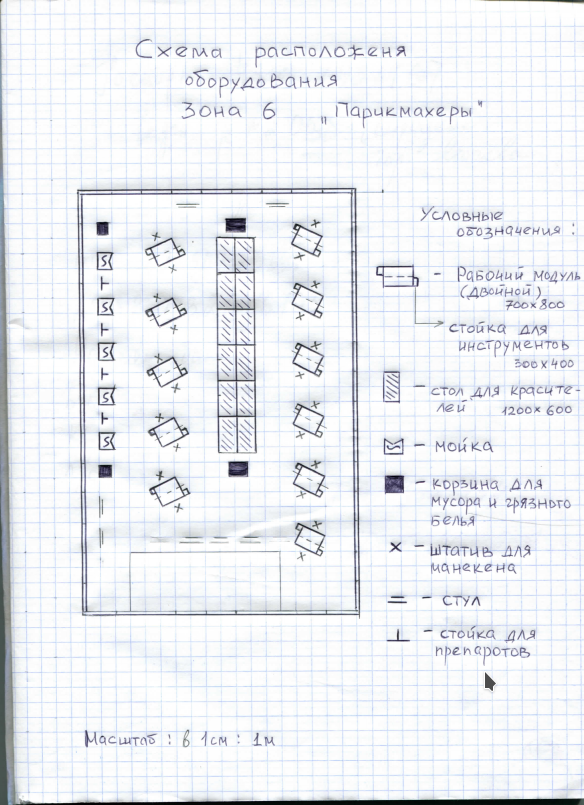 Схема расположеня
оборудования
Зона 6 „Парикмахеры"
Условные
обозначения :
- Рабочий модуль
(двойной)
700х800
стойка для
инструментов
300х400
- стол для красите-
лей 1200х600
- мойка
- корзина для
мусора и грязного
белья
- штатив для
манекена
- стул
- стойка для
препаротов
Масштаб : в 1см : 1м